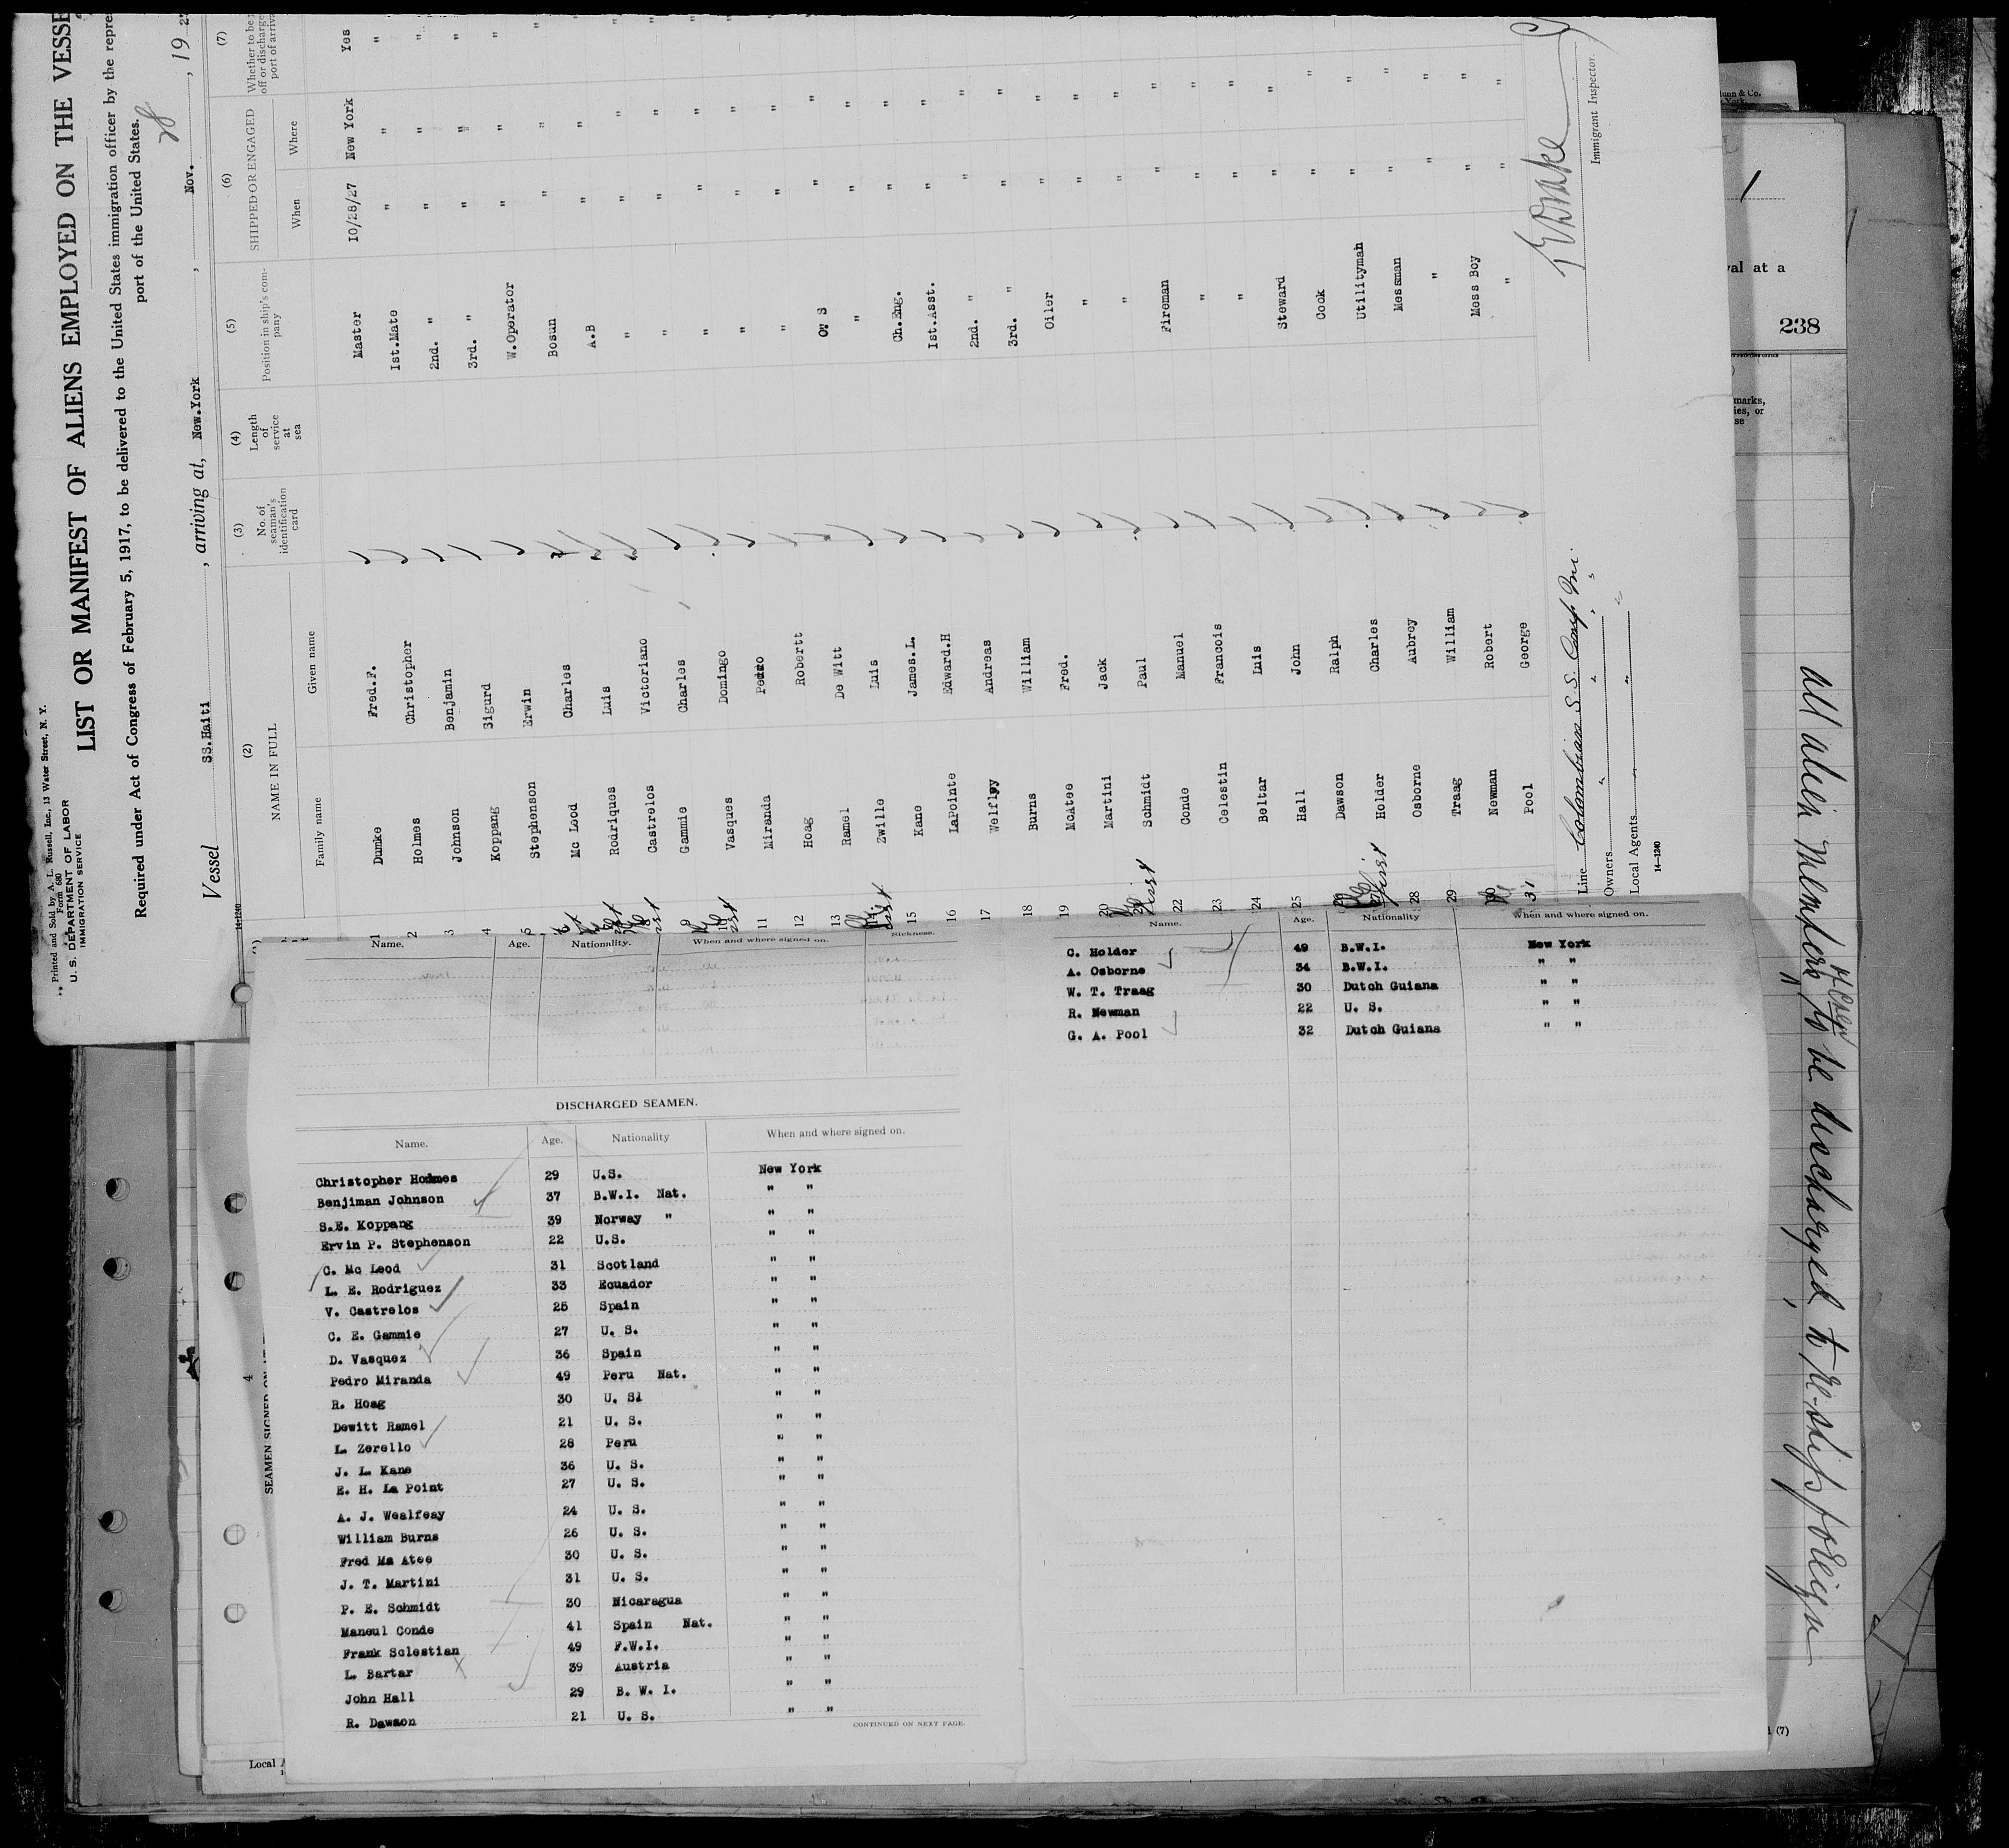 Printed and Sold by A. L. Russell, Inc., 13 Water Street, N. Y.
Form 680
U. S. DEPARTMENT OF LABOR
IMMIGRATION SERVICE
LIST OR MANIFEST OF ALIENS EMPLOYED ON THE VESSE
Required under Act of Congress of February 5, 1917, to be delivered to the United States immigration officer by the repre
port of the United States.
Vessel SS.Haiti, arriving at, New.York, Nov. 28, 19 2
14-1240
(2) (3) (4) (5) (6) (7)
NAME IN FULL
Family name Given name
No. of seaman's identification card
Length of service at sea
Position in ship's company
SHIPPED OR ENGAGED
When Where
Whether to be off or discharge port of arriva
1 Dumke Fred.F. Master 10/28/27 New York Yes
2 Holmes Christopher Ist.Mate " " "
3 Johnson Benjamin 2nd. " " " "
4 Koppang Sigurd 3rd. " " " "
5 Stephenson Erwin W.Operator " " "
Mc Leod Charles Bosun " " "
Rodriques Luis A.B " " "
8 Castrelos Victoriano " " " "
9 Gammie Charles " " " "
10 Vasques Domingo " " " "
11 Miranda Pedro " " " "
12 Hoag Robertt " " " "
13 Ramel De Witt O. S " "
14 Zwille Luis " " "
15 Kane James.L. Ch.Eng. " "
16 LaPointe Edward.H Ist.Asst. " "
17 Welfley Andreas 2nd. " " "
18 Burns William 3rd. " " "
19 McAtee Fred. Oiler " "
20 Martini Jack " " "
Schmidt Paul " " "
22 Conde Manuel Fireman " "
23 Celestin Francois " " "
24 Beltar Luis " " "
25 Hall John Steward " "
Dawson Ralph Cook " "
Holder Charles Utilityman " "
28 Osborne Aubrey Messman " "
29 Traag William " " "
30 Newman Robert Mess Boy " "
31 Pool George " " "
Line Colombian S.S. Comp Inc.
Owners " " "
Local Agents " " "
14-1240
Immigrant Inspector.
Name. Age. Nationality. When and where signed on. Sickness.
DISCHARGED SEAMEN.
Name. Age. Nationality When and where signed on.
Christopher Holmes 29 U.S. New York
Benjiman Johnson 37 B.W.I. Nat. " "
S.E. Koppang 39 Norway " " "
Ervin P. Stephenson 22 U.S. " "
C. Mc Leod 31 Scotland " "
L. E. Rodriguez 33 Ecuador " "
V. Castrelos 25 Spain " "
C. E. Gammie 27 U. S. " "
D. Vasquez 36 Spain " "
Pedro Miranda 49 Peru Nat. " "
R. Hoag 30 U. S1 " "
Dewitt Ramel 21 U. S. " "
L. Zerello 28 Peru " "
J. L. Kane 36 U. S. " "
E. H. La Point 27 U. S. " "
A. J. Wealfeay 24 U. S. " "
William Burns 26 U. S. " "
Fred Ma Atee 30 U. S. " "
J. T. Martini 31 U. S. " "
P. E. Schmidt 30 Nicaragua " "
Maneul Conde 41 Spain Nat. " "
Frank Solestian 49 F.W.I. " "
L. Bartar 39 Austria " "
John Hall 29 B. W. I. " "
R. Dawson 21 U. S. " "
CONTINUED ON NEXT PAGE.
Name. Age. Nationality When and where signed on.
C. Holder 49 B.W.I. New York
A. Osborne 34 B.W.I. " "
W. T. Traag 30 Dutch Guiana " "
R. Newman 22 U. S. " "
G. A. Pool 32 Dutch Guiana " "
All alien Members of Crew to be discharged to re-ship foreign
unn & Co.
York.
1
val at a
238
marks,
ies, or
se
SEAMEN SIGNED ON
4
Local
(7)